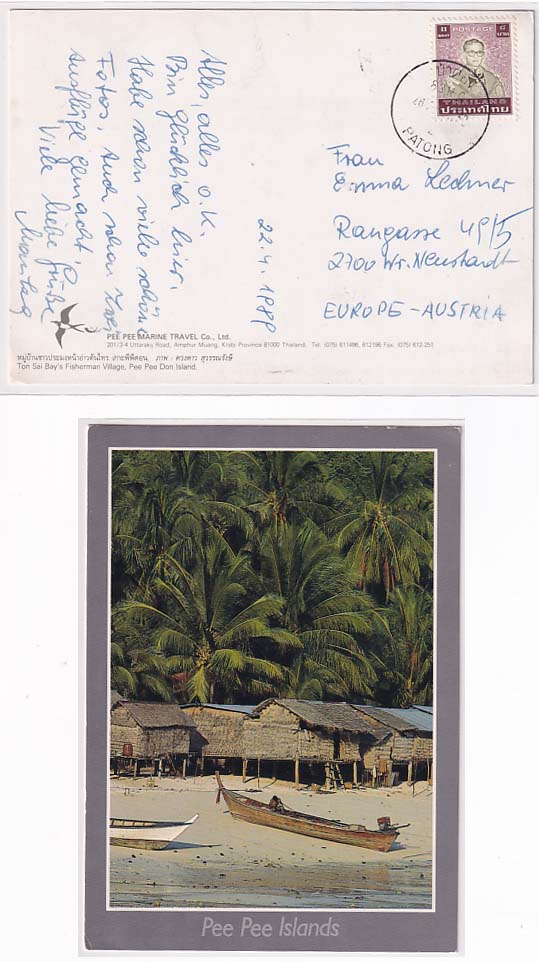 Alles, alles o.K.
Bin glücklich hier.
Habe schon viele schöne
Fotos. Auch schon
Ausflüge gemacht.
Viele liebe Grüße
22.4.1989
POSTAGE
THAILAND
ประเทศไทย
PATONG
Frau
Emma Lechner
Rangasse 49/5
2700 Wr. Neustadt
EUROPE-AUSTRIA
PEE PEE MARINE TRAVEL Co., Ltd.
201/3-4 Uttarakij Road, Amphur Muang, Krabi Province 81000 Thailand. Tel: (075) 611496, 612196 Fax: (075) 612-251
หมู่บ้านชาวประมงหน้าอ่าวต้นไทร เกาะพีพีดอน. ภาพ : ดวงดาว สุวรรณรังษี
Ton Sai Bay's Fisherman Village, Pee Pee Don Island.
Pee Pee Islands